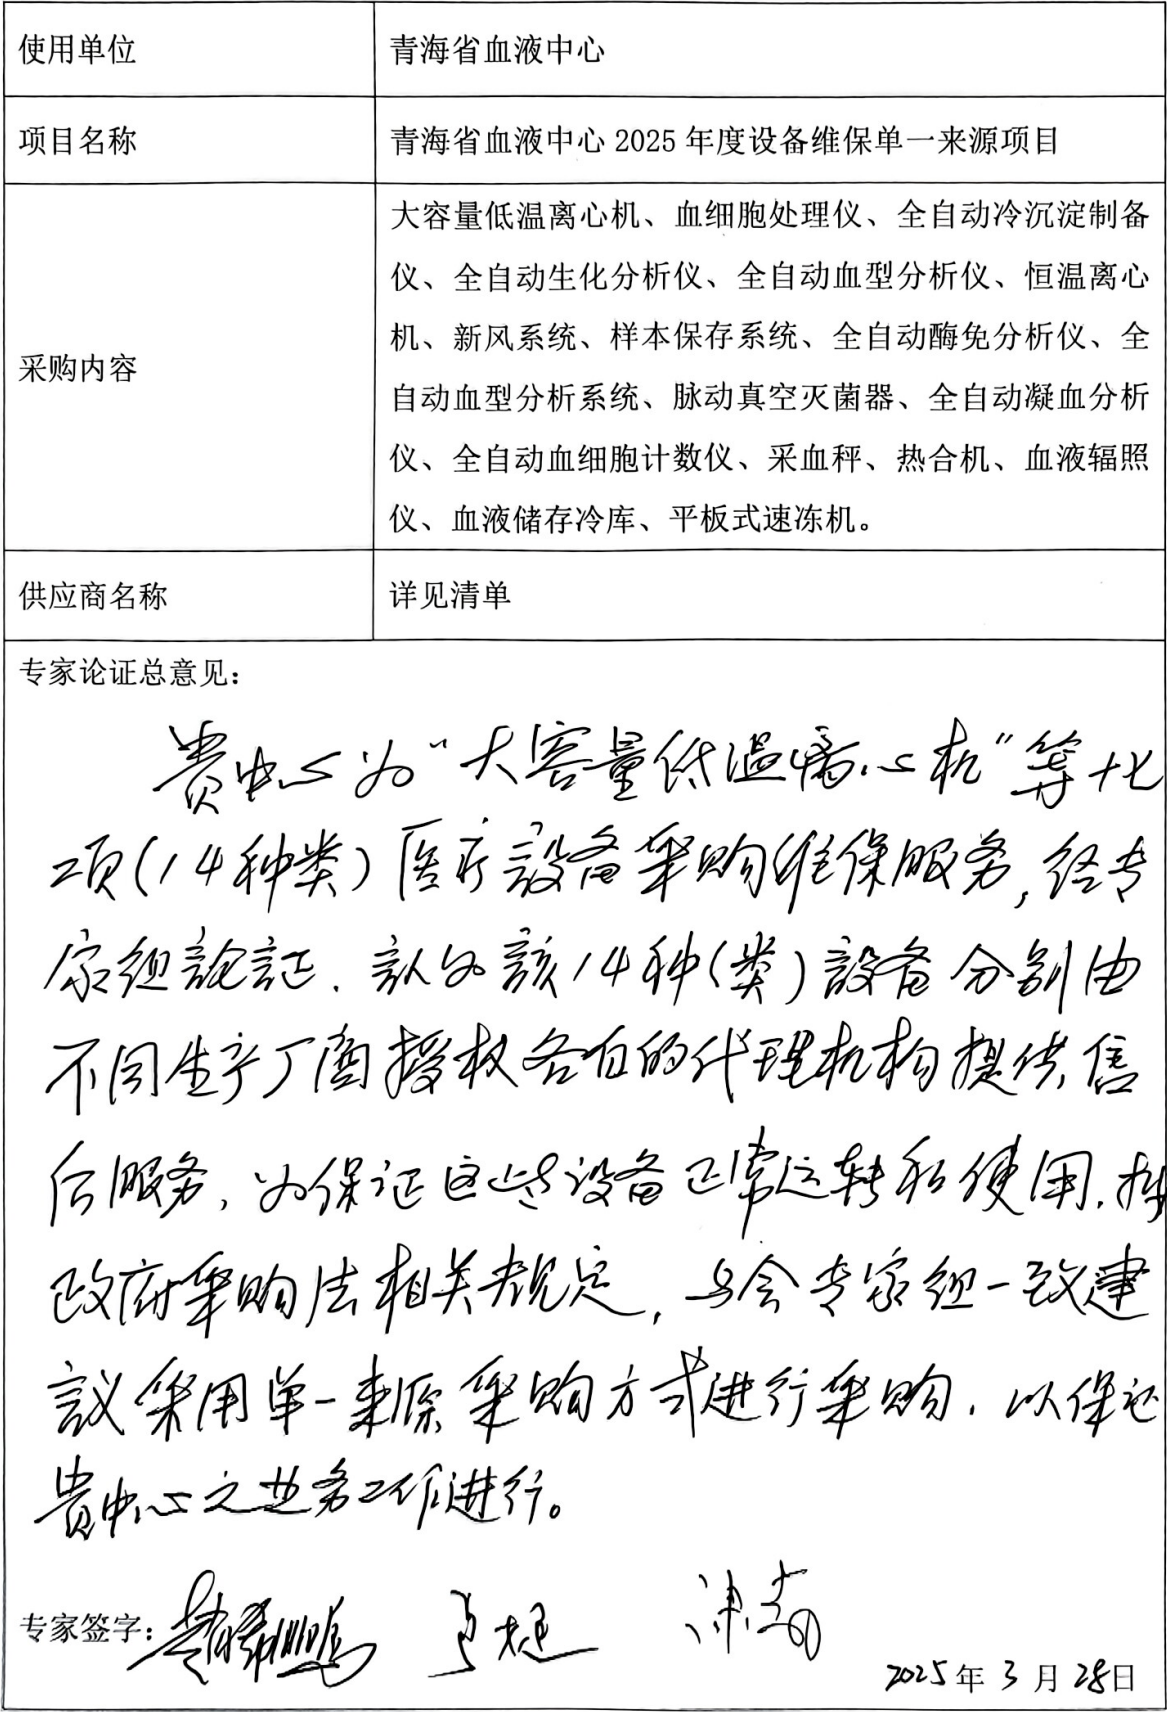 使用单位
青海省血液中心
项目名称
青海省血液中心 2025 年度设备维保单一来源项目
采购内容
大容量低温离心机、血细胞处理仪、全自动冷沉淀制备
仪、全自动生化分析仪、全自动血型分析仪、恒温离心
机、新风系统、样本保存系统、全自动酶免分析仪、全
自动血型分析系统、脉动真空灭菌器、全自动凝血分析
仪、全自动血细胞计数仪、采血秤、热合机、血液辐照
仪、血液储存冷库、平板式速冻机。
供应商名称
详见清单
专家论证总意见：
贵中心为“大容量低温离心机”等十七
项(14种类)医疗設备采购维保服务,经专
家组論証.認为該14种(类)設备分别由
不同生产厂商授权各自的代理机构提供售
后服务,为保证这些设备正常运转和使用.按
政府采购法相关规定,与会专家组一致建
議采用单一来源采购方式进行采购.以保证
贵中心之业务工作进行。
专家签字：
2025年3月28日